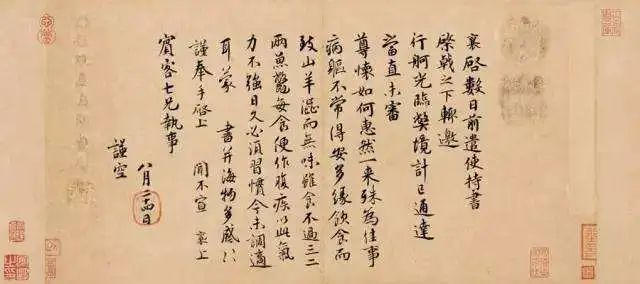 襄啓數日前遣使持書
棨戟之下輒邀
行舸光臨獘境計已通達
當直未審
尊懷如何惠然一来殊為佳事
病軀不常得安多縁飲食而
致山羊澁而無味雖食不過三二
兩魚鼈每食便作腹疾以此氣
力不強日久必須習慣今未調適
耳蒙 書并海物多感〻
謹奉手啓上 聞不宣 襄上
賓客七兄執事
八月廿四日
謹空